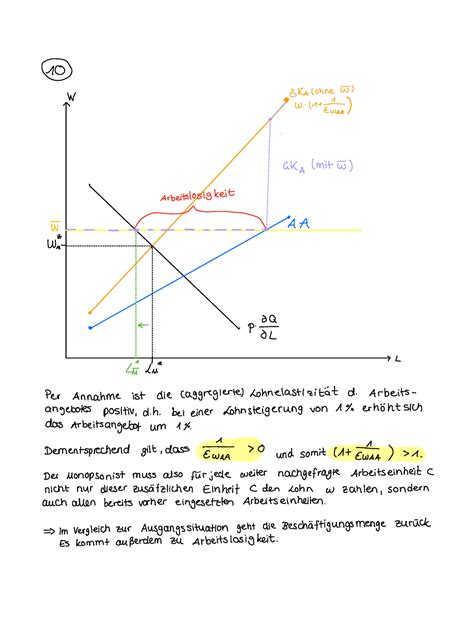 10
W
GKA (ohne w̅)
w·(1+ 1/εwAA)
GKA (mit w̅)
Arbeitslosigkeit
w̅
AA
WM*
P· ∂Q/∂L
LM̅* LM*
L
Per Annahme ist die (aggregierte) Lohnelastizität d. Arbeits-
angebotes positiv, d.h. bei einer Lohnsteigerung von 1% erhöht sich
das Arbeitsangebot um 1%.
Dementsprechend gilt, dass 1/εwAA > 0 und somit (1+ 1/εwAA) > 1.
Der Monopsonist muss also für jede weiter nachgefragte Arbeitseinheit C
nicht nur dieser zusätzlichen Einheit C den Lohn w zahlen, sondern
auch allen bereits vorher eingesetzten Arbeitseinheiten.
⇒ Im Vergleich zur Ausgangssituation geht die Beschäftigungsmenge zurück
Es kommt außerdem zu Arbeitslosigkeit.